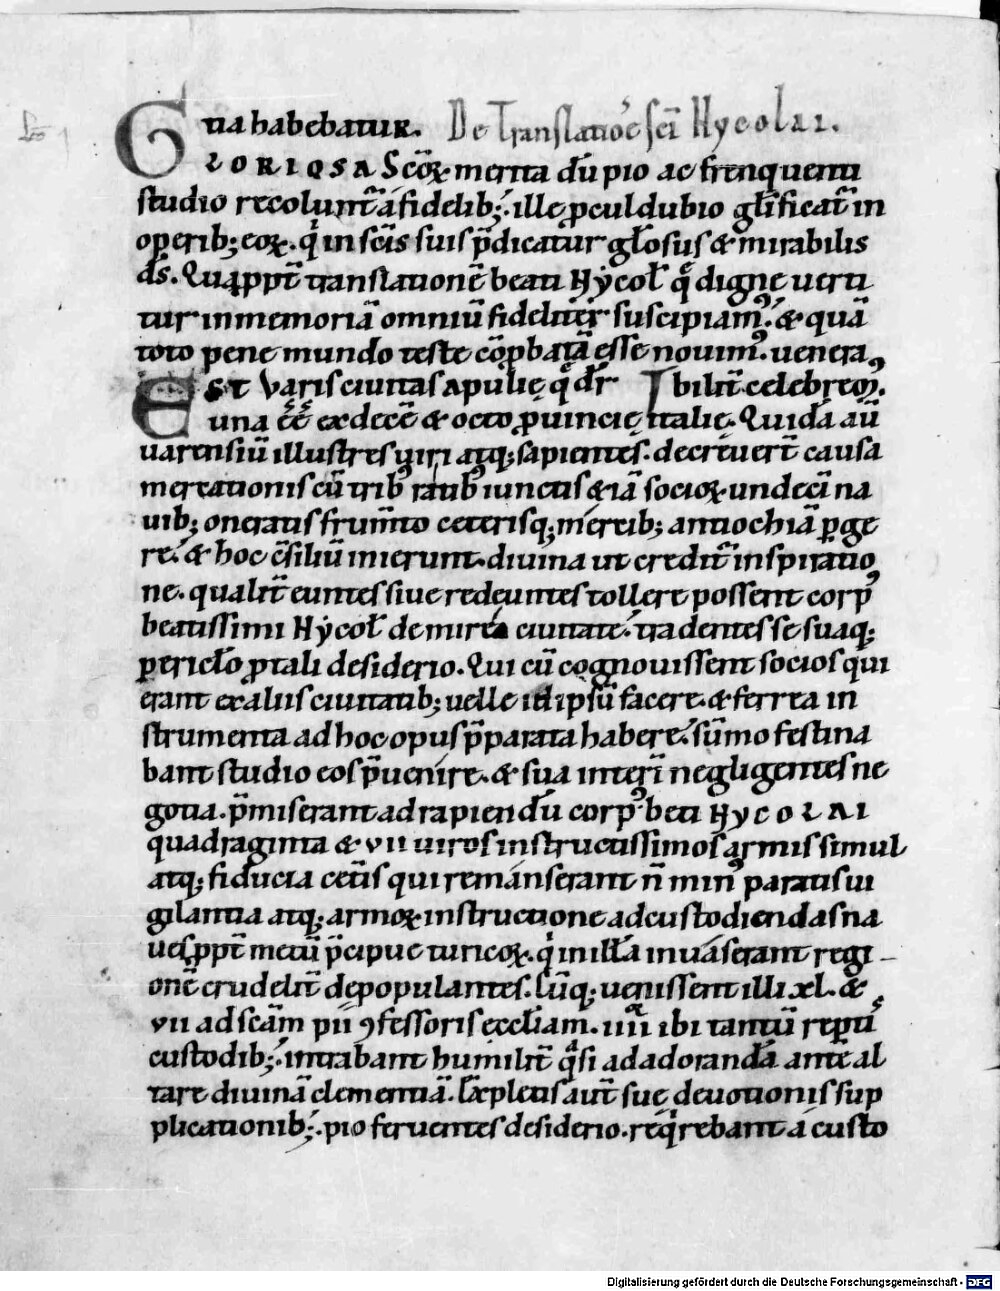 tia habebatur. De Translatiōe sc̄i Nycolai.
GLORIOSA Sc̄oꝝ merita dū pio ac frequenti
studio recolunt̄ á fidelib; ille ꝓculdubio gl̄ificat̄ in
operib; eoꝝ. qͥ in sc̄is suis p̄dicatur gl̄osus & mirabilis
d̄s. Quap̄pt̄ translationē beati Nẏcol̄ quę digne uerti
tur in memoriā omniū fidelit̄ suscipiamꝰ. & quā
toto pene mundo teste cōꝓbatā esse nouimꝰ. uenera
bilit̄ celebremꝰ.
EST Varis ciuitas apulię quę d̄r
una ēē ex decē & octo ꝓuincię italię. Quidā aū
uarensiū illustres uiri atq; sapientes. decreuer̄t causa
mercationis cū tribꝰ ratibꝰ iunctis & iā socioꝝ undeci na
uib; oneratis frum̄to ceterisq; mercib; antiochiā ꝑge
re. & hoc c̄siliū inierunt. diuina ut credit̄ inspiratio
ne. qualit̄ euntes siue redeuntes tollere possent corpꝰ
beatissimi Nẏcol̄ de mirea ciuitate. tradentes se suaq;
pericl̄o ꝓ tali desiderio. Qui cū cognouissent socios qui
erant ex aliis ciuitatib; uelle id ipsū facere. & ferrea in
strumenta ad hoc opus p̄parata habere. sūmo festina
bant studio eos p̄uenire. & sua interī negligentes ne
gotia. p̄miserant ad rapiendū corpꝰ beati Nycolai
quadraginta & vii uiros instructissimos armis simul
atq; fiducia cet̄is qui remanserant n̄ minꝰ paratis ui
gilantia atq; armoꝝ instructione ad custodiendas na
ues ꝓpt̄ metū p̄cipue turicoꝝ. qͥ in ill̄a inuaserant regi
onē crudelit̄ depopulantes. Cūq; uenissent illi xl. &
vii ad sc̄am pii ꝯfessoris eccl̄iam. iiiiᵒʳ ibi tantū reptis
custodib; intrabant humilit̄ qͣsi ad adorandā ante al
tare diuinā clementiā. Expletis aut̄ suę deuotionis sup
plicationib; pio feruentes desiderio. reqͥrebant á custo
Digitalisierung gefördert durch die Deutsche Forschungsgemeinschaft - DFG